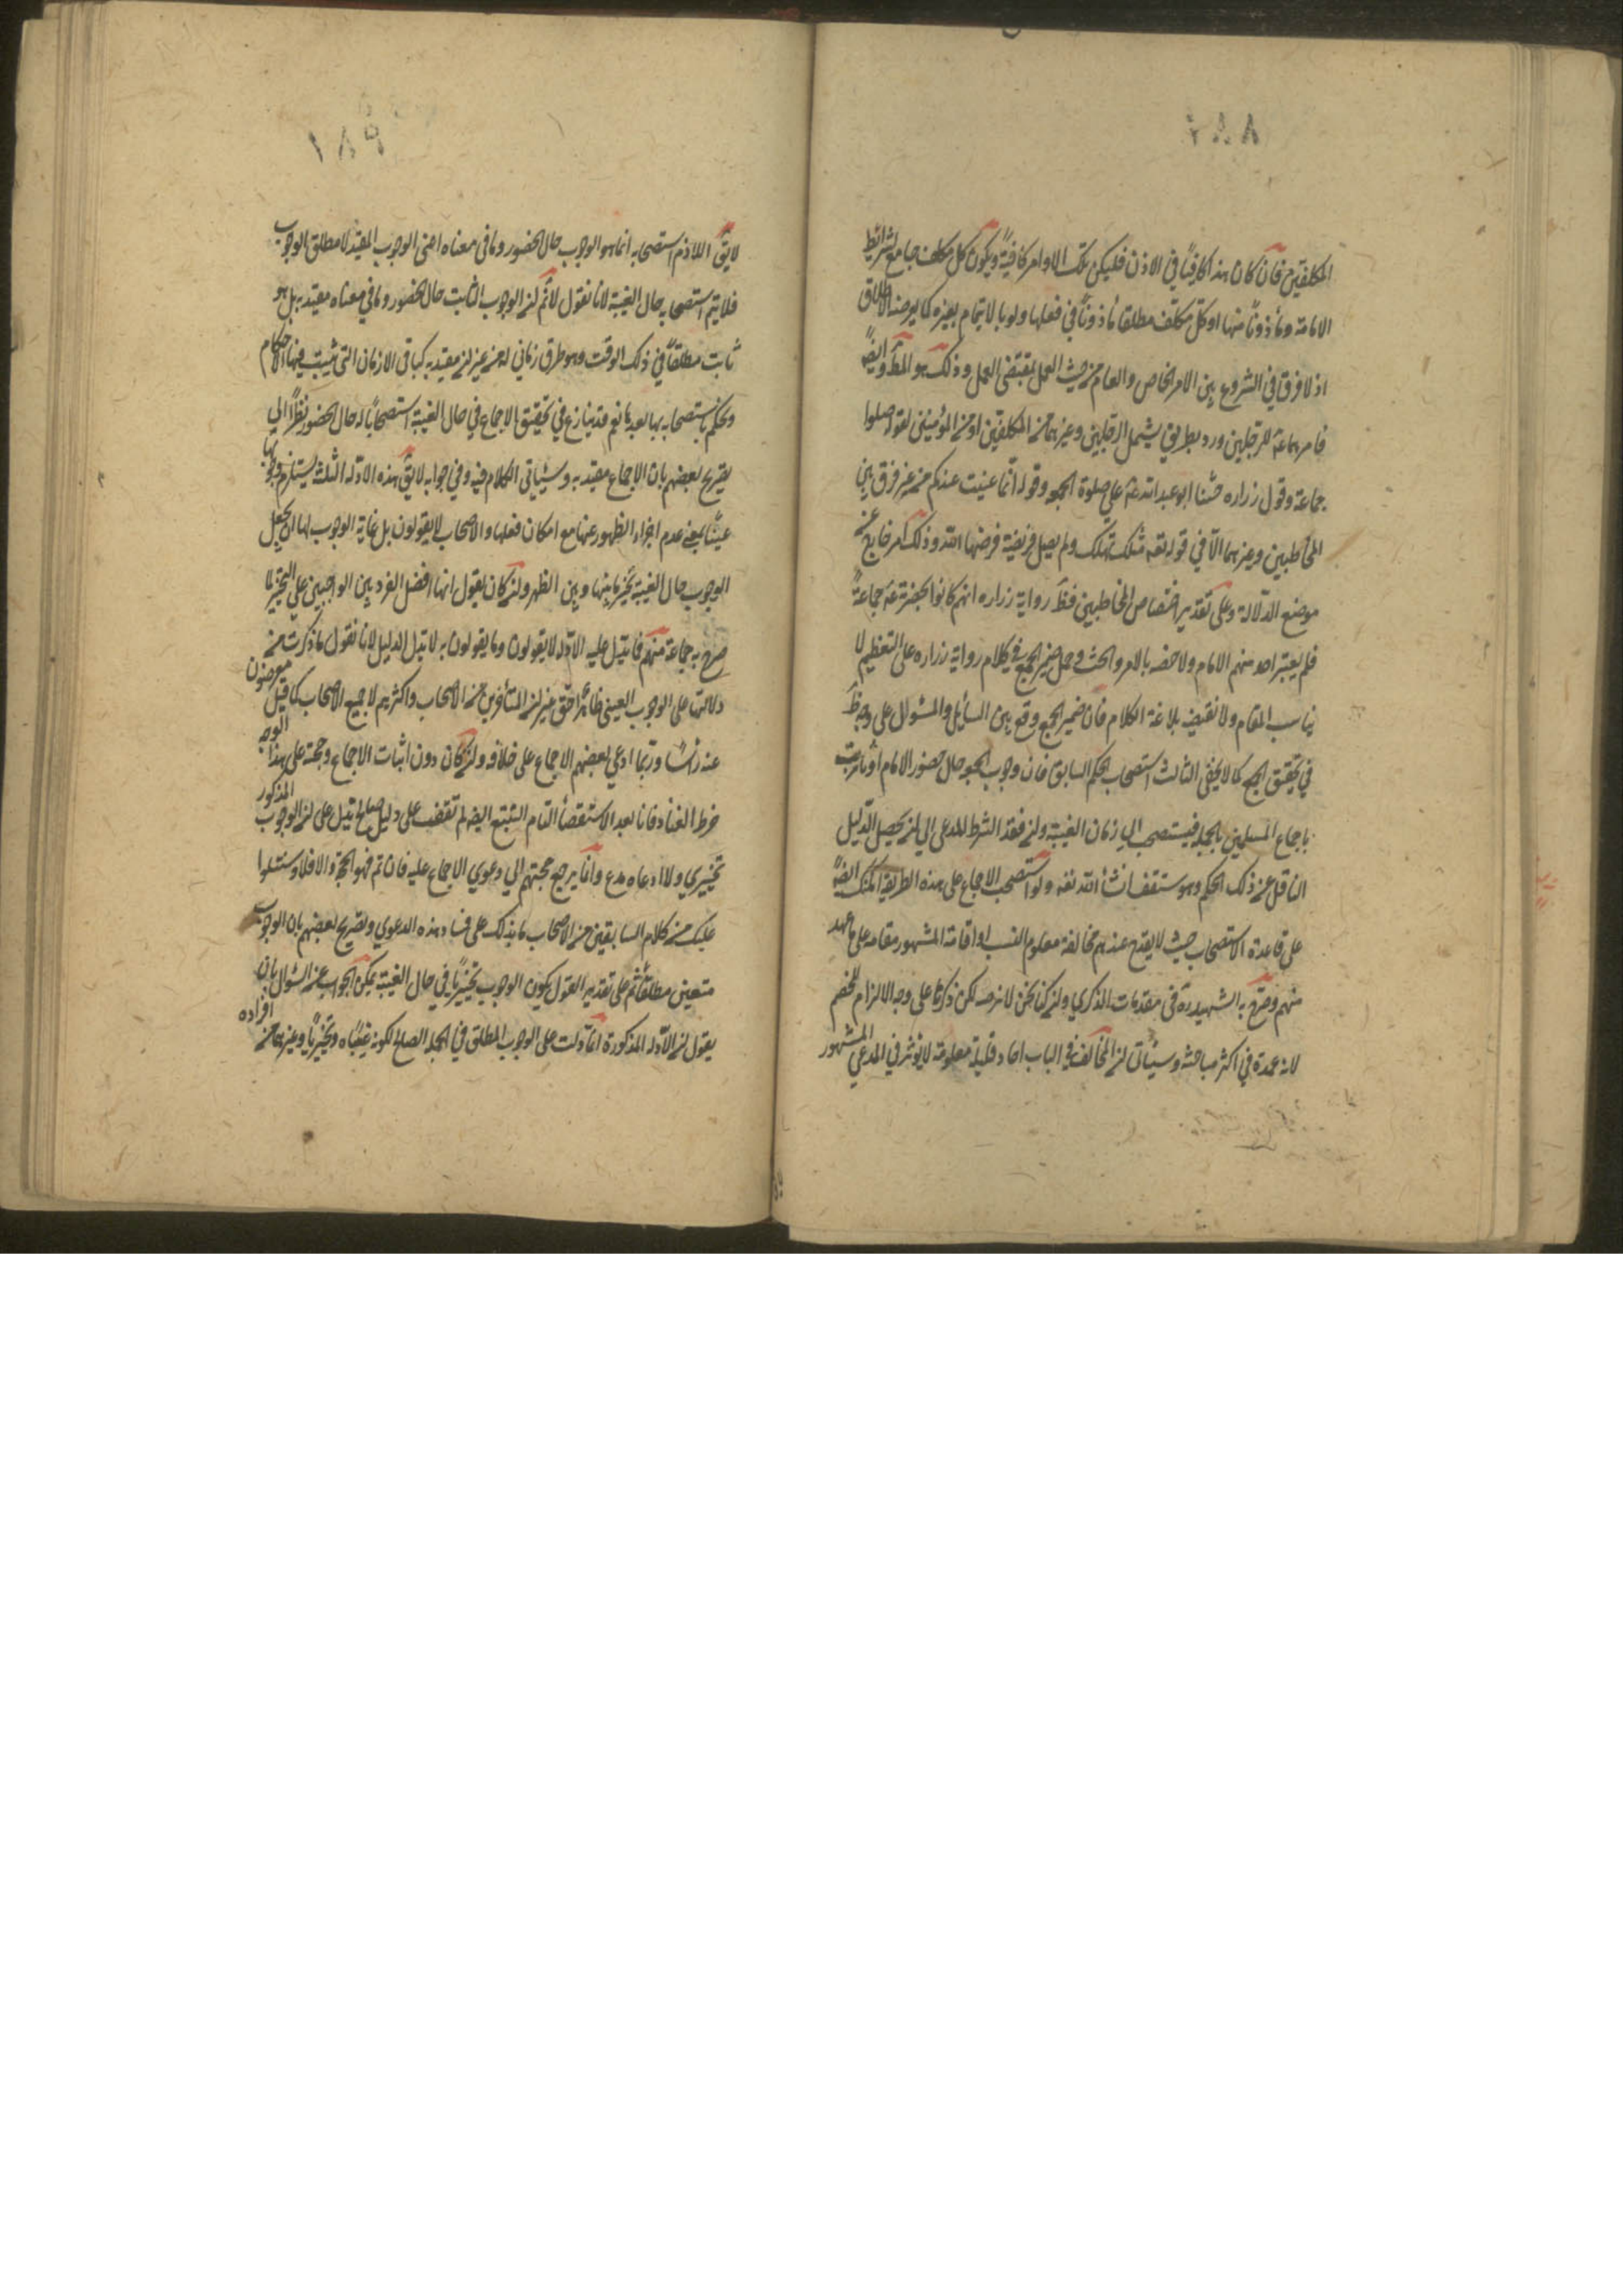 ١٨٨
المكلفين فان كان هذا كافيا في الاذن فليكن تلك الاوامر كافية ويكون كل مكلف جامع لشرايط
الامامة ومأذونا منها او كل مكلف مطلقا مأذونا في فعلها ولو بالايتمام بغيره كما يرصنه الاطلاق
اذ لا فرق في الشروع بين الامر الخاص والعام من حيث العمل بمقتضى العمل وذلك هو المط وايضا
فامرهما عم للرجلين ورد بطريق يشمل الرجلين وغيرهما من المكلفين او من المؤمنين لقوله صلوا
جماعة وقول زراره حثنا ابو عبد الله عم على صلوة الجمعه وقوله انما عنيت عندكم من غير فرق بين
المخاطبين وغيرهما الا في قوله لعمه مثلك تهلك ولم يصل فريضة فرضها الله وذلك امر خارج عن
موضع الدلالة وعلى تقدير اختصاص المخاطبين فظ رواية زراره انهم كانوا بحضرته عم جماعة
فلم يعتبر احد منهم الامام ولا خصه بالامر والحث وحمل ضمير الجمع في كلام رواية زراره على التعظيم لا
يناسب المقام ولا تقتضيه بلاغة الكلام فان ضمير الجمع وقع بين السائل والمسئول على وجه ظ
في تحقيق الجمع كما لا يخفى الثالث استصحاب الحكم السابق فان وجوب الجمعه حال حضور الامام او نائبه ثبت
باجماع المسلمين بالجمله فيستصحب الى زمان الغيبة ولن فقد الشرط المدعى الى لن يحصل الدليل
الناقل عن ذلك الحكم وهو ستقف انشأ الله تعه ولو استصحب الاجماع على هذه الطريقة امكن ايضا
على قاعدة الاستصحاب حيث لا يقدح عندهم مخالفة معلوم النسب او اقامة المشهور مقامه على ما عهد
منهم وصرح به الشهيد ره في مقدمات الذكرى ولن كنا نحن لا نرصه لكن ذكرنا على وجه الالزام للخصم
لانه عمدة في اكثر مباحثه وسيأتى لن المخالف في الباب احاد قليلة معلومة لا يؤثر في المدعى المشهور
١٨٩
لا يق اللازم استصحابه انما هو الوجوب حال الحضور وما في معناه اعنى الوجوب المقيد لا مطلق الوجوب
فلا يتم استصحابه حال الغيبة لانا نقول لا نم لن الوجوب الثابت حال الحضور وما في معناه مقيد به بل هو
ثابت مطلقا في ذلك الوقت وهو طرق زماني له من غير لن مقيد به كباقى الازمان التى يثبت فيها الاحكام
وتحكم باستصحابه بها بعد ما نعم قد ينازع في تحقيق الاجماع في حال الغيبة استصحابا له حال الحضور نظرا الى
تصريح بعضهم بان الاجماع مقيد به وسيأتى الكلام فيه وفي جوابه لا يق هذه الادله الثلثة يستلزم وجوبها
عينا بمعنى عدم اجزاء الظهر عنها مع امكان فعلها والاصحاب لا يقولون بل غاية الوجوب لها ان يجعل
الوجوب حال الغيبة تخيريا بينها وبين الظهر ولن كان يقول انها افضل الفردين الواجبين على التخير كما
صرح به جماعة منهم فما تدل عليه الادله لا يقولون وما يقولون به لا تدل الدليل لانا نقول ما ذكرت من
دلالتها على الوجوب العينى ظاهرا حق غير لن المتأخرين من الاصحاب واكثرهم لا جميع الاصحاب كما قيل معرضون
عنه رأسا وربما ادعى بعضهم الاجماع على خلافه ولن كان دون اثبات الاجماع وحجة على هذا الوجه
خرط القتاد فانا بعد الاستقصأ التام التتبع ايضا لم نقف على دليل صالح تدل على لن الوجوب المذكور
تخييري ولا ادعاه مدع وانما يرجع حجتهم الى دعوى الاجماع عليه فان تم فهو الحجة والا فلا وسنتلوا
عليك من كلام السابقين من الاصحاب ما يدلك على فساد هذه الدعوى وتصريح بعضهم بان الوجوب
متعين مطلقا ثم على تقدير القول بكون الوجوب تخييريا في حال الغيبة يمكن الجواب عن السئوال بان
يقول لن الادله المذكورة انما دلت على الوجوب المطلق في الجمله الصالح لكونه عينيا وتخيريا وغيرهما من افراده